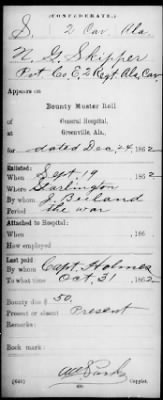 (CONFEDERATE.)
S. 2 Cav. Ala.
N. G. Skipper
Pvt. Co. E, 2 Regt. Ala. Cav.
Appears on
Bounty Muster Roll
of General Hospital,
Greenville, Ala.,
for dated Dec. 24, 1862
Enlisted:
When Sept. 19, 1862
Where Darlington
By whom J. Beiland
Period the war
Attached to Hospital:
When , 186
How employed
Last paid
By whom Capt. Holmes
To what time Oct. 31, 1862
Bounty due $ 50.
Present or absent Present
Remarks:
Book mark:
(646) Copyist.